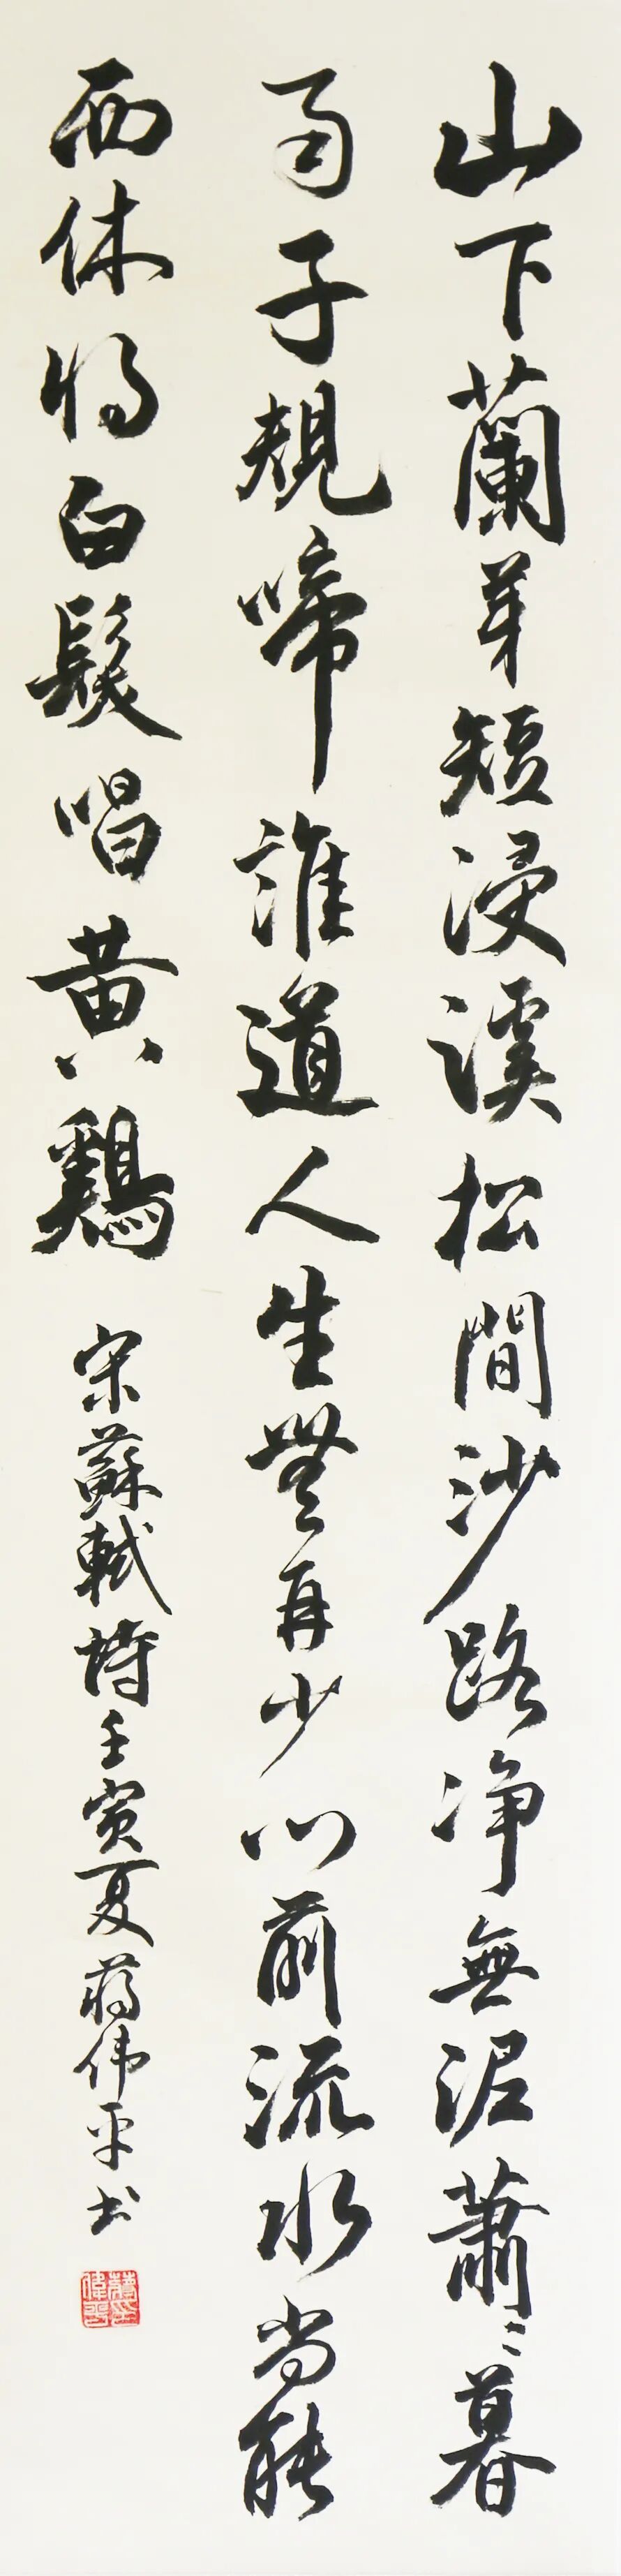 山下蘭芽短浸溪松間沙路净無泥蕭〻暮
雨子規啼誰道人生無再少門前流水尚能
西休將白髮唱黄鷄
宋蘇軾詩壬寅夏蔣伟平书